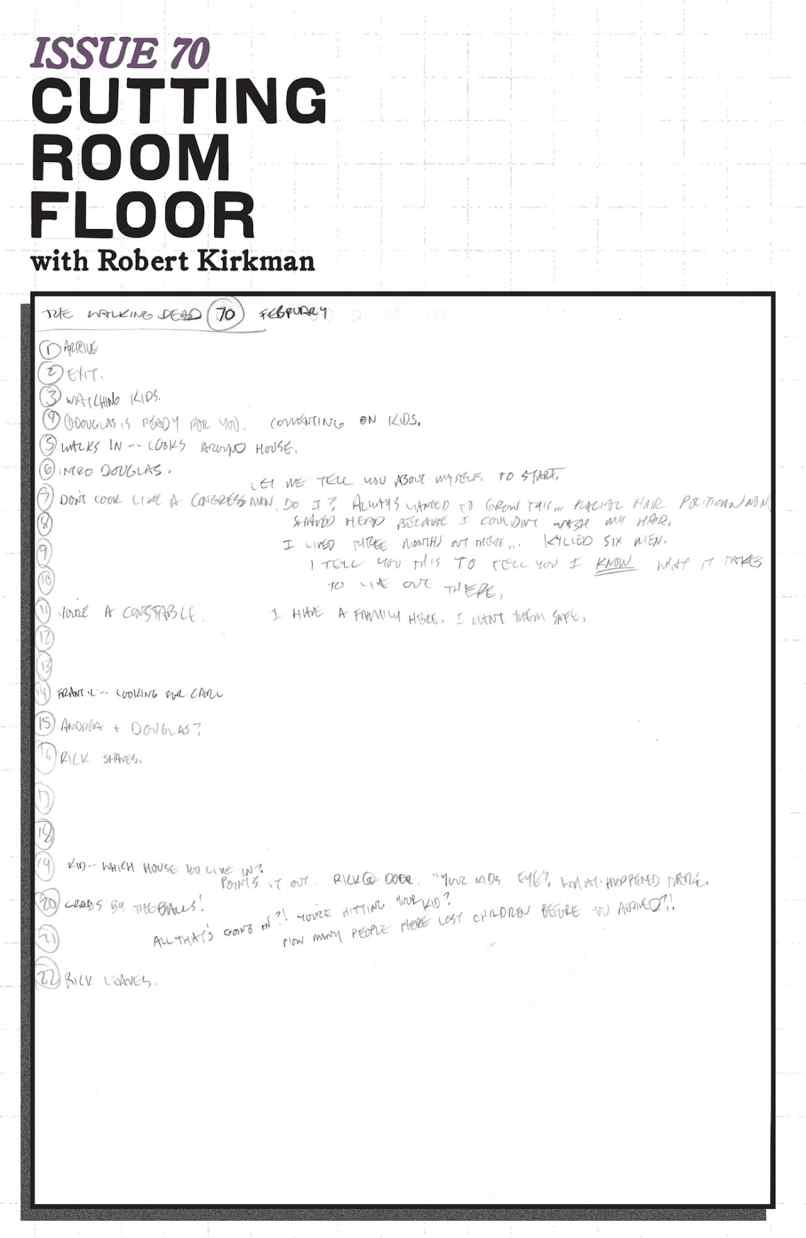 ISSUE 70
CUTTING
ROOM
FLOOR
with Robert Kirkman
THE WALKING DEAD 70 FEBRUARY
1 ARRIVE
2 EXIT.
3 WATCHING KIDS.
4 DOUGLAS IS READY FOR YOU. COMMENTING ON KIDS.
5 WALKS IN -- LOOKS AROUND HOUSE.
6 INTRO DOUGLAS.
LET ME TELL YOU ABOUT MYSELF. TO START.
7 DON'T LOOK LIKE A CONGRESSMAN, DO I? ALWAYS WANTED TO GROW THIS... HAIR
8 SHAVED HEAD BECAUSE I COULDN'T WASH MY HAIR.
9 I LIVED THREE MONTHS OUT THERE... KILLED SIX MEN.
10 I TELL YOU THIS TO TELL YOU I KNOW WHAT IT TAKES
TO LIVE OUT THERE.
11 YOU'RE A CONSTABLE. I HAVE A FAMILY HERE. I WANT THEM SAFE.
12
13
14 FRANTIC -- LOOKING FOR CARL
15 ANDREA + DOUGLAS?
16 RICK SHAVES.
17
18
19 KID -- WHICH HOUSE YOU LIVE IN?
POINTS IT OUT. RICK @ DOOR. "YOUR KIDS EYE? WHAT HAPPENED THERE.
20 GRABS BY THE BALLS!
ALL THAT'S GOING ON?! YOU'RE HITTING YOUR KID?
21 HOW MANY PEOPLE HERE LOST CHILDREN BEFORE YOU ARRIVED?!
22 RICK LEAVES.